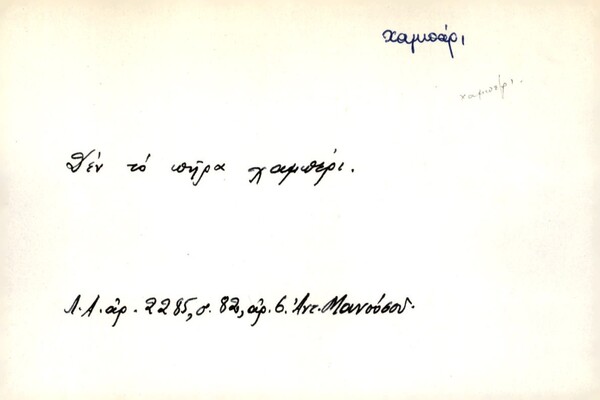 χαμπάρι
χαμπέρι.
Δέν τό πῆρα χαμπέρι.
Λ.Α. ἀρ. 2285, σ. 82, ἀρ. 6. Ἀντ. Μανούσου.